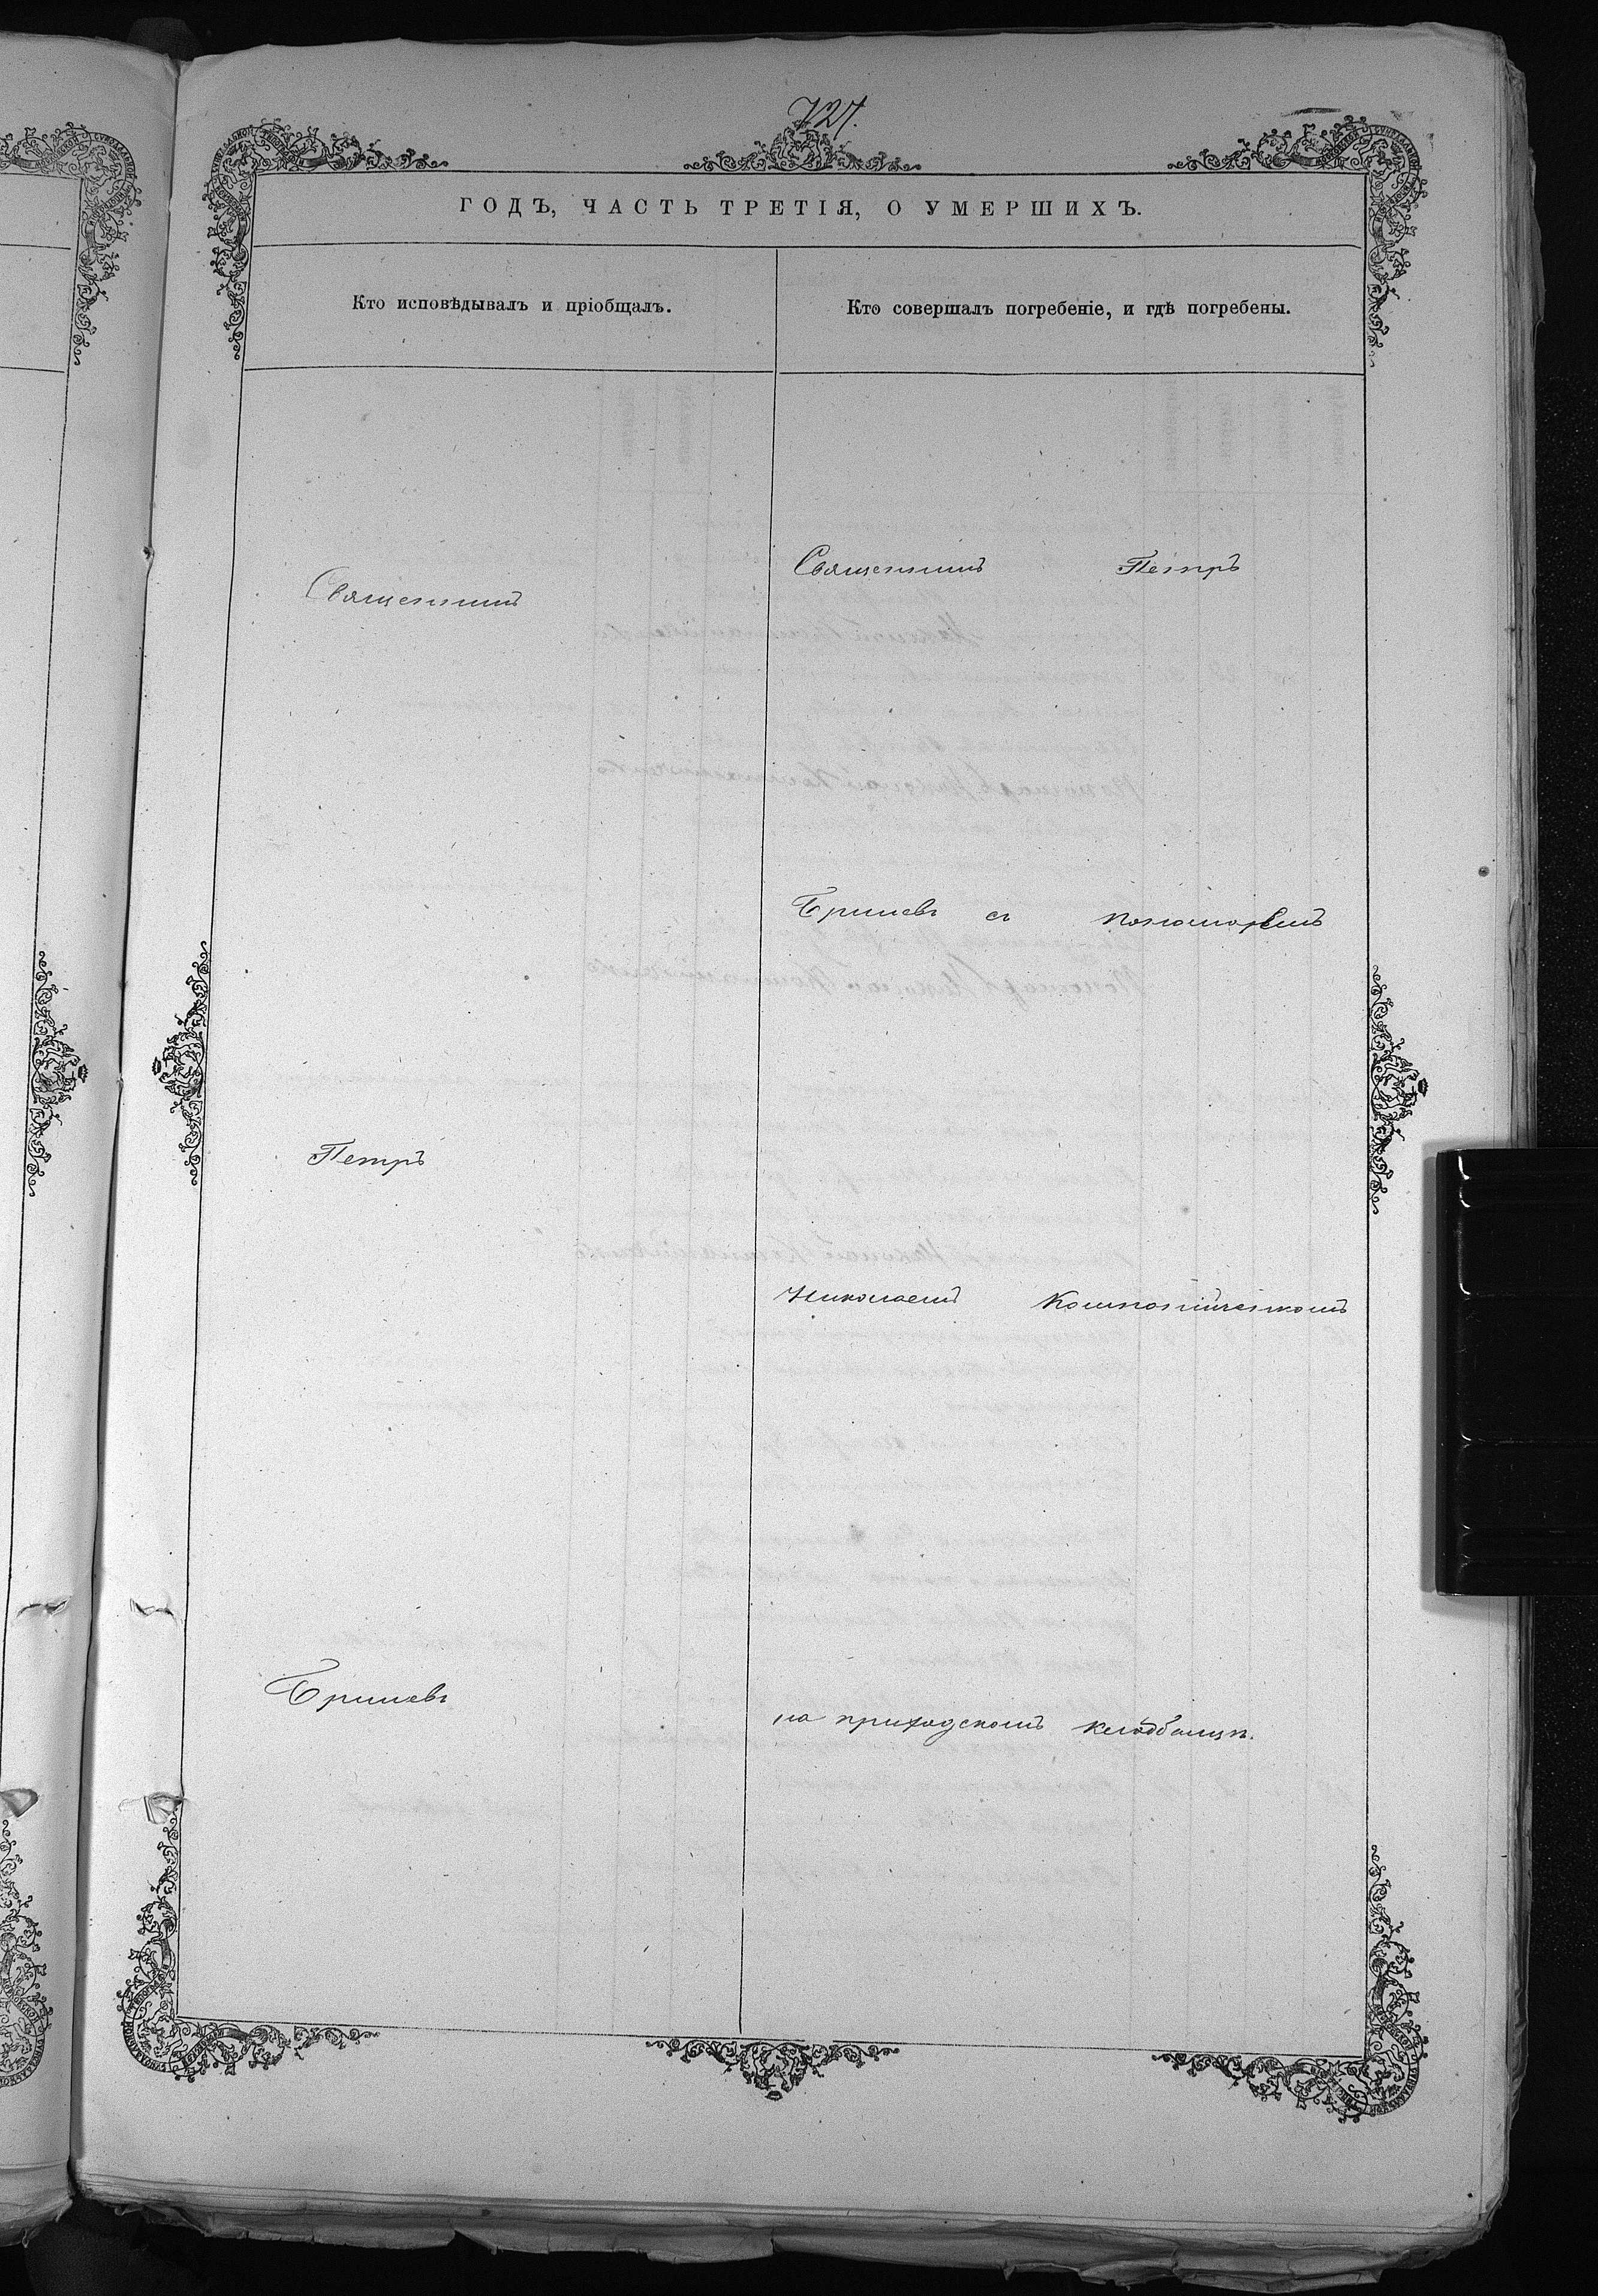 727.
ГОДЪ, ЧАСТЬ ТРЕТІЯ, О УМЕРШИХЪ.
Кто исповѣдывалъ и пріобщалъ.
Священникъ
Петръ
Гришевъ
Кто совершалъ погребеніе, и гдѣ погребены.
Священникъ Петръ
Гришевъ съ пономаремъ
Николаемъ
на приходскомъ кладбищѣ.